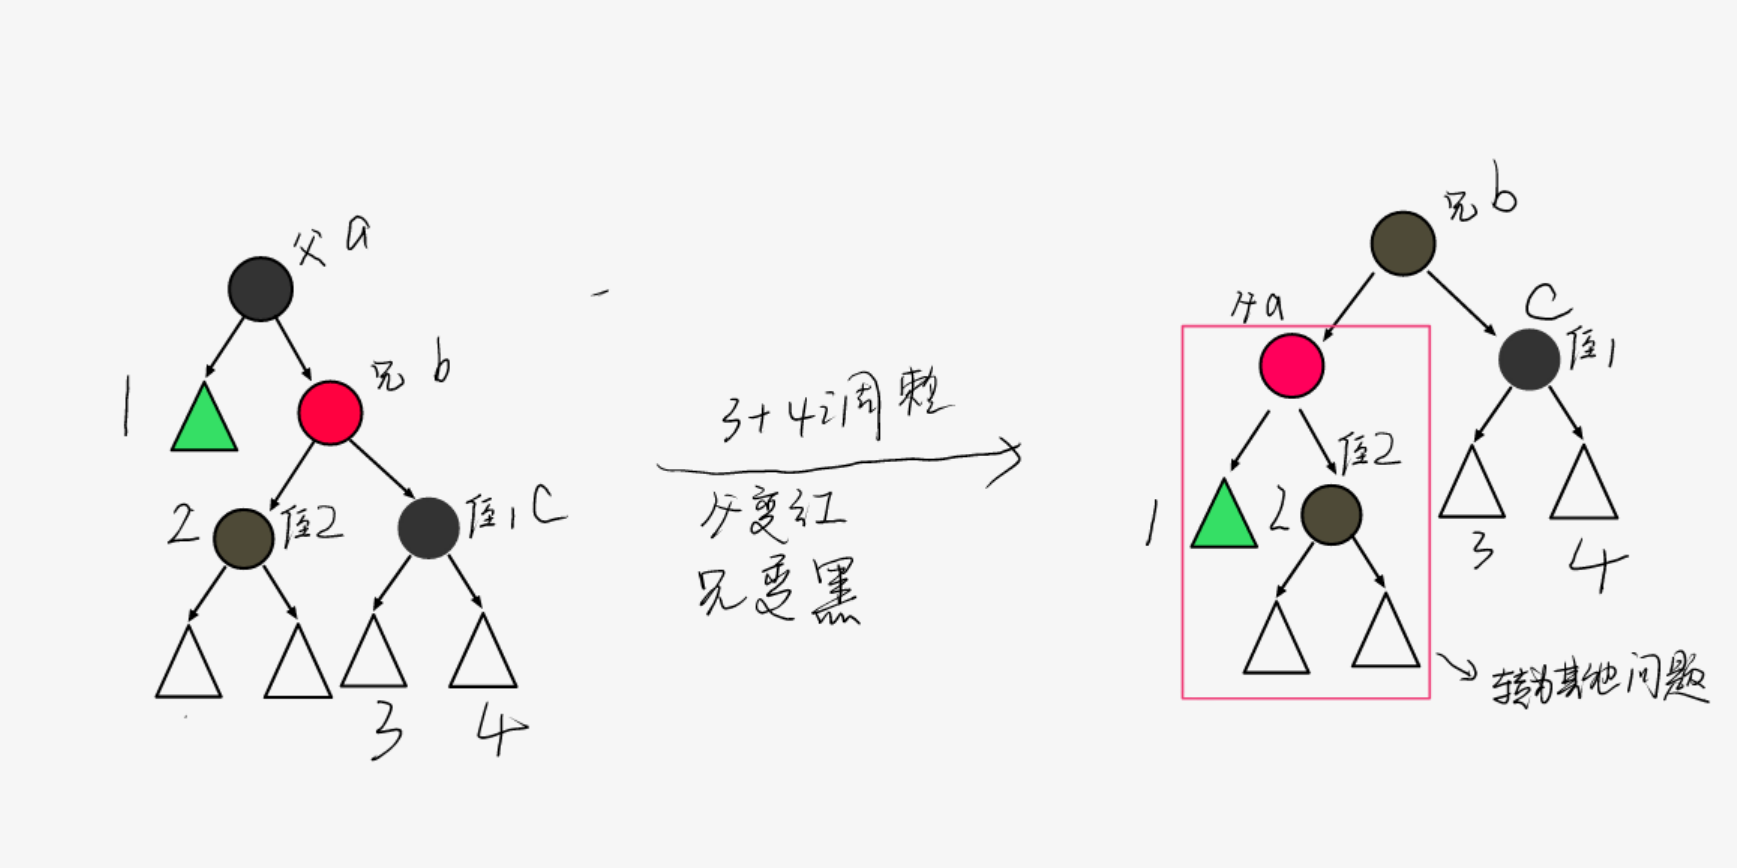 父 a
1
兄 b
2 侄2
侄1 C
3 4
3+4调整
父变红
兄变黑
兄 b
父a
C
侄1
侄2
1
2
3
4
转为其他问题